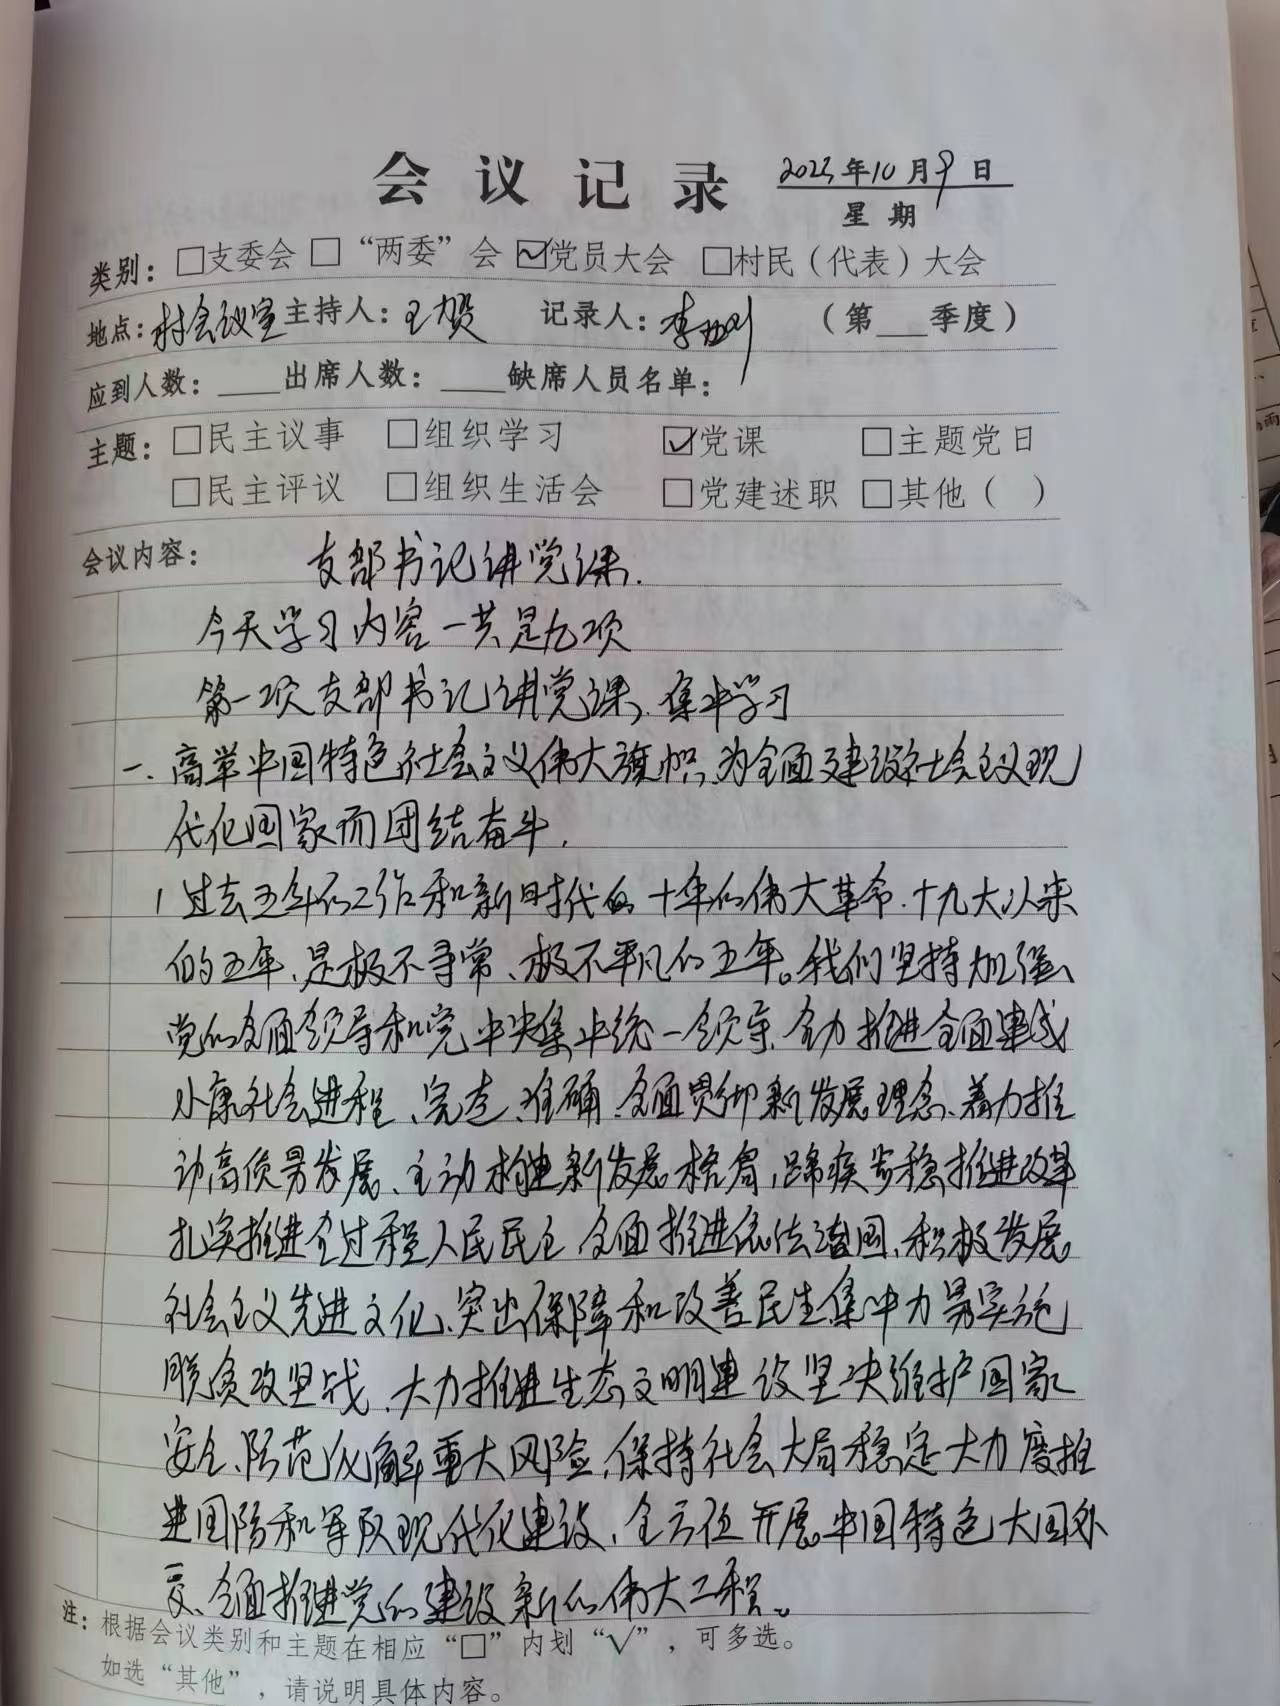 会议记录 2023年10月9日
星期
类别：□支委会 □“两委”会 ☑党员大会 □村民（代表）大会
地点：村会议室 主持人：王贺 记录人：李 （第___季度）
应到人数：____出席人数：____缺席人员名单：
主题：□民主议事 □组织学习 ☑党课 □主题党日
□民主评议 □组织生活会 □党建述职 □其他（ ）
会议内容： 支部书记讲党课.
今天学习内容一共是九项
第一项支部书记讲党课,集中学习
一、高举中国特色社会主义伟大旗帜,为全面建设社会主义现
代化国家而团结奋斗.
1 过去五年的工作和新时代的十年的伟大革命.十九大以来
的五年、是极不寻常、极不平凡的五年。我们坚持加强
党的全面领导和党中央集中统一领导,全力推进全面建成
小康社会进程、完走、准确、全面贯彻新发展理念、着力推
动高质易发展、主动构建新发展格局,蹄疾步稳推进改革
扎实推进全过程人民民主,全面推进依法治国,积极发展
社会主义先进文化、突出保障和改善民生集中力易实施
脱贫攻坚战,大力推进生态文明建设坚决维护国家
安全、防范化解重大风险,保持社会大局稳定大力度推
进国防和军队现代化建设、全方位开展中国特色大国外
交、全面推进党的建设新的伟大工程。
注：根据会议类别和主题在相应“□”内划“√”，可多选。
如选“其他”，请说明具体内容。